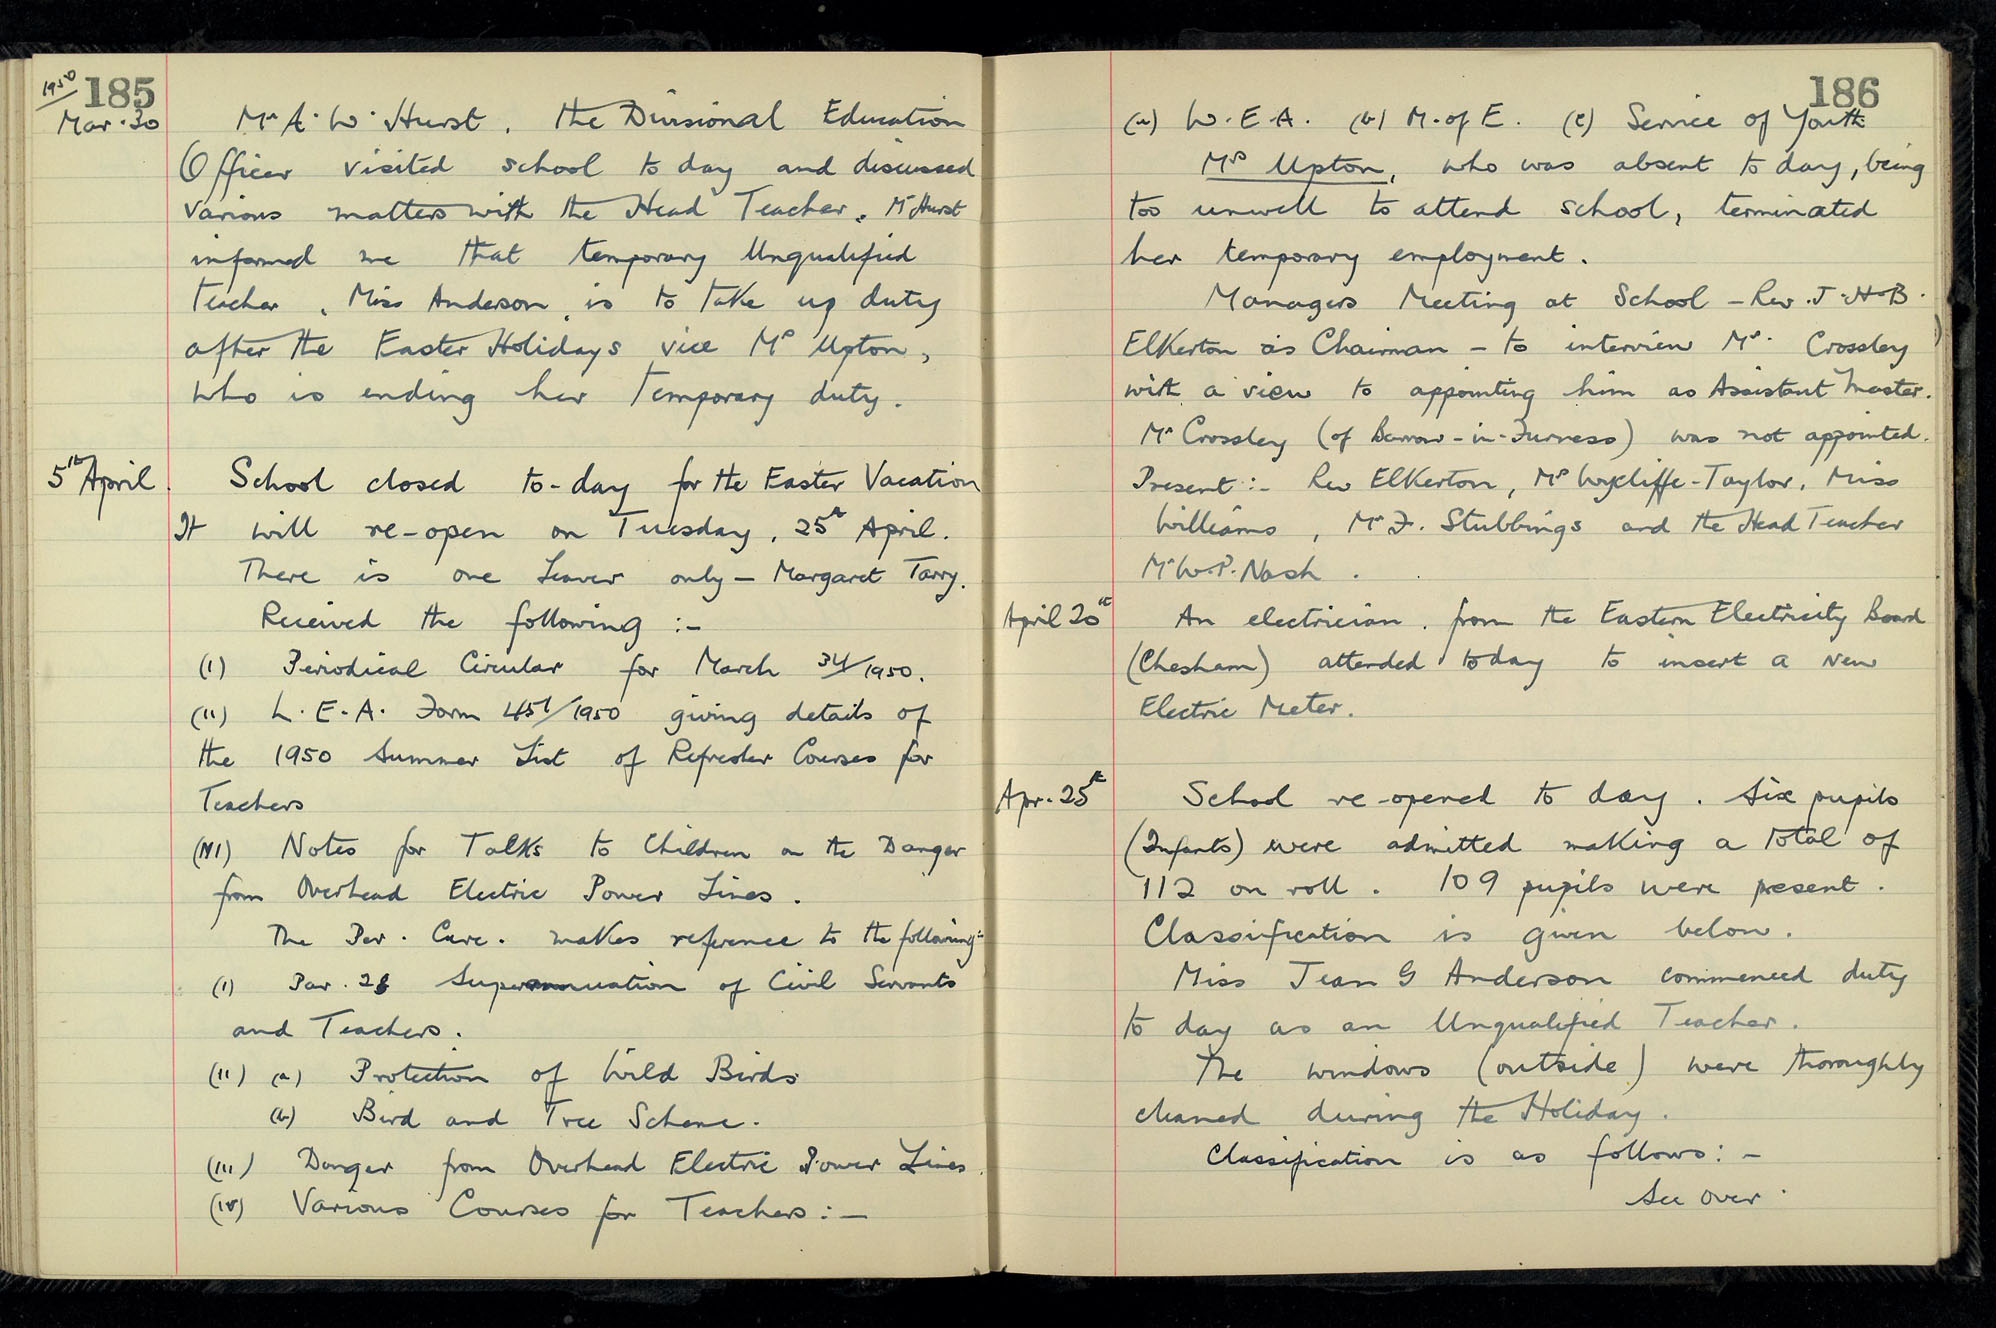 1950
185
Mar. 30
Mr A. W. Hurst, the Divisional Education
Officer visited school to day and discussed
various matters with the Head Teacher. Mr Hurst
informed me that temporary Unqualified
Teacher, Miss Anderson, is to take up duty
after the Easter Holidays vice Mrs Upton,
who is ending her temporary duty.
5th April.
School closed to-day for the Easter Vacation
It will re-open on Tuesday, 25th April.
There is one Leaver only – Margaret Tarry.
Received the following :-
(I) Periodical Circular for March 34/1950.
(II) L.E.A. Form 451/1950 giving details of
the 1950 Summer List of Refresher Courses for
Teachers
(III) Notes for Talks to Children on the Danger
from Overhead Electric Power Lines.
The Per. Circ. makes reference to the following:-
(I) Par. 28 Superannuation of Civil Servants
and Teachers.
(II) (a) Protection of Wild Birds
(b) Bird and Tree Scheme.
(III) Danger from Overhead Electric Power Lines.
(IV) Various Courses for Teachers :-
186
(a) W.E.A. (b) M. of E. (c) Service of Youth
Mrs Upton, who was absent to day, being
too unwell to attend school, terminated
her temporary employment.
Managers Meeting at School – Rev. J.H.B.
Elkerton as Chairman – to interview Mr. Crossley
with a view to appointing him as Assistant Master.
Mr Crossley (of Barrow-in-Furness) was not appointed.
Present :- Rev Elkerton, Mrs Wycliffe-Taylor, Miss
Williams, Mr F. Stubbings and the Head Teacher
Mr W.P. Nash.
April 20th
An electrician, from the Eastern Electricity Board
(Chesham) attended today to insert a new
Electric Meter.
Apr. 25th
School re-opened to day. Six pupils
(Infants) were admitted making a total of
112 on roll. 109 pupils were present.
Classification is given below.
Miss Jean G Anderson commenced duty
to day as an Unqualified Teacher.
The windows (outside) were thoroughly
cleaned during the Holiday.
Classification is as follows :-
See over.